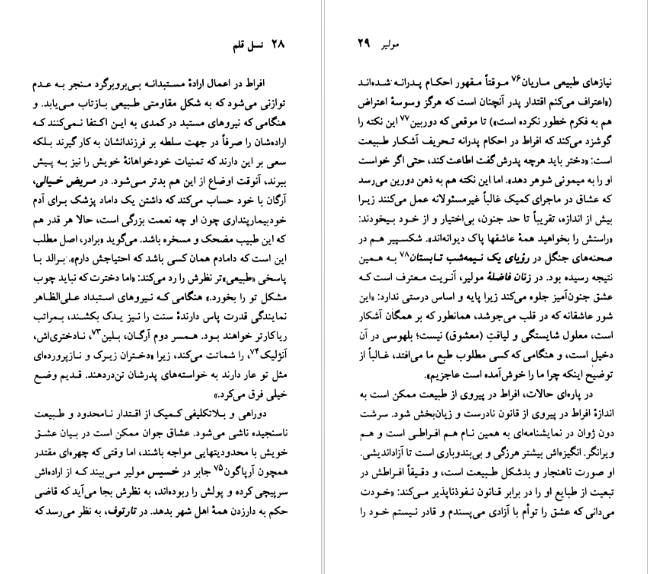 ۲۸ نسل قلم
افراط در اعمال ارادهٔ مستبدانه بی‌بروبرگرد منجر به عدم
توازنی می‌شود که به شکل مقاومتی طبیعی بازتاب می‌یابد. و
هنگامی که نیروهای مستبد در کمدی به این اکتفا نمی‌کنند که
اراده‌شان را صرفاً در جهت سلطه بر فرزندانشان به کار گیرند بلکه
سعی بر این دارند که تمنیات خودخواهانهٔ خویش را نیز به پیش
ببرند، آنوقت اوضاع از این هم بدتر می‌شود. در مریض خیالی،
آرگان با خود حساب می‌کند که داشتن یک داماد پزشک برای آدم
خودبیمارپنداری چون او چه نعمت بزرگی است، حالا هر قدر هم
که این طبیب مضحک و مسخره باشد. می‌گوید «برادر، اصل مطلب
این است که دامادم همان کسی باشد که احتیاجش دارم». برالد با
پاسخی «طبیعی»تر نظرش را رد می‌کند: «اما دخترت که نباید چوب
مشکل تو را بخورد.» هنگامی که نیروهای استبداد علی‌الظاهر
نمایندگی قدرت پاس دارندهٔ سنت را نیز یدک بکشند، بمراتب
ریاکارتر خواهند بود. همسر دوم آرگان، بلین۷۳، نادختری‌اش،
آنژلیک۷۴، را شماتت می‌کند، زیرا «دختران زیرک و نازپرورده‌ای
مثل تو عار دارند به خواسته‌های پدرشان تن‌دردهند. قدیم وضع
خیلی فرق می‌کرد.»
دوراهی و بلاتکلیفی کمیک از اقتدار نامحدود و طبیعت
ناسنجیده ناشی می‌شود. عشاق جوان ممکن است در بیان عشق
خویش با محدودیتهایی مواجه باشند، اما وقتی که چهره‌ای مقتدر
همچون آرپاگون۷۵ جابر در خسیس مولیر می‌بیند که از اراده‌اش
سرپیچی کرده و پولش را ربوده‌اند، به نظرش بجا می‌آید که قاضی
حکم به دارزدن همهٔ اهل شهر بدهد. در تارتوف، به نظر می‌رسد که
مولیر ۲۹
نیازهای طبیعی ماریان۷۶ موقتاً مقهور احکام پدرانه شده‌اند
(«اعتراف می‌کنم اقتدار پدر آنچنان است که هرگز وسوسهٔ اعتراض
هم به فکرم خطور نکرده است») تا موقعی که دورین۷۷ این نکته را
گوشزد می‌کند که افراط در احکام پدرانه تحریف آشکار طبیعت
است: «دختر باید هرچه پدرش گفت اطاعت کند، حتی اگر خواست
او را به میمونی شوهر دهد». اما این نکته هم به ذهن دورین می‌رسد
که عشاق در ماجرای کمیک غالباً غیرمسئولانه عمل می‌کنند زیرا
بیش از اندازه، تقریباً تا حد جنون، بی‌اختیار و از خود بیخودند:
«راستش را بخواهید همهٔ عاشقها پاک دیوانه‌اند». شکسپیر هم در
صحنه‌های جنگل در رؤیای یک نیمه‌شب تابستان۷۸ به همین
نتیجه رسیده بود. در زنان فاضلهٔ مولیر، آنریت معترف است که
عشق جنون‌آمیز جلوه می‌کند زیرا پایه و اساس درستی ندارد: «این
شور عاشقانه که در قلب می‌جوشد، همانطور که بر همگان آشکار
است، معلول شایستگی و لیاقتِ (معشوق) نیست؛ بلهوسی در آن
دخیل است، و هنگامی که کسی مطلوب طبع ما می‌افتد، غالباً از
توضیح اینکه چرا ما را خوش‌آمده است عاجزیم».
در پاره‌ای حالات، افراط در پیروی از طبیعت ممکن است به
اندازهٔ افراط در پیروی از قانون نادرست و زیان‌بخش شود. سرشت
دون ژوان در نمایشنامه‌ای به همین نام هم افراطی است و هم
ویرانگر. انگیزه‌اش بیشتر هرزگی و بی‌بندوباری است تا آزاداندیشی.
او صورت ناهنجار و بدشکل طبیعت است، و دقیقاً افراطش در
تبعیت از طبایع او را در برابر قانون نفوذناپذیر می‌کند: «خودت
می‌دانی که عشق را توأم با آزادی می‌پسندم و قادر نیستم خود را